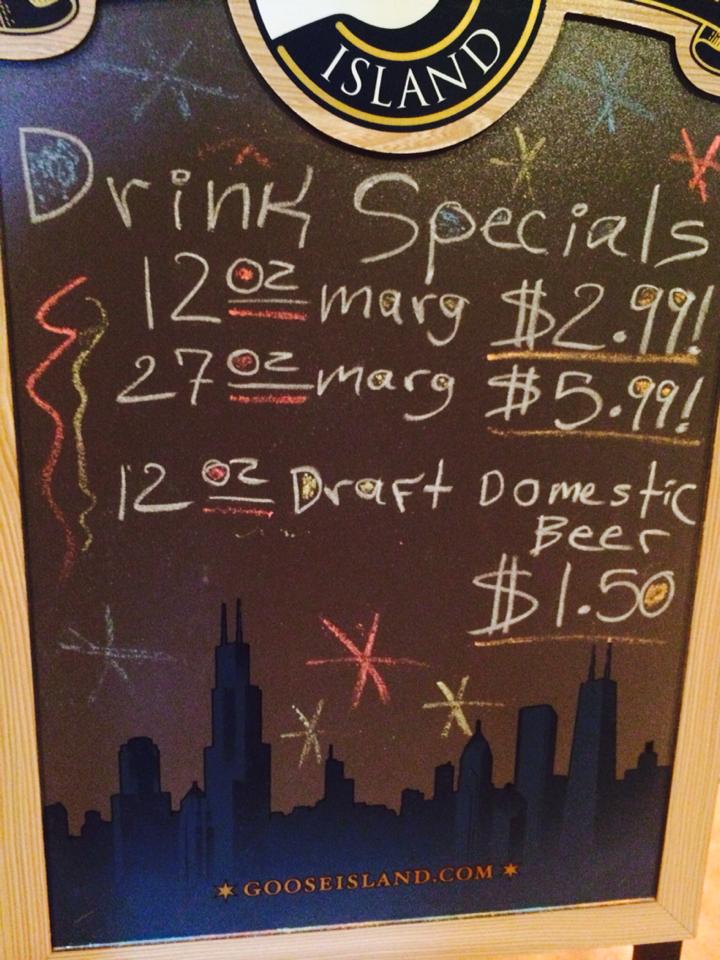 ISLAND
Drink Specials
12 oz marg $2.99!
27 oz marg $5.99!
12 oz Draft Domestic
Beer
$1.50
GOOSEISLAND.COM